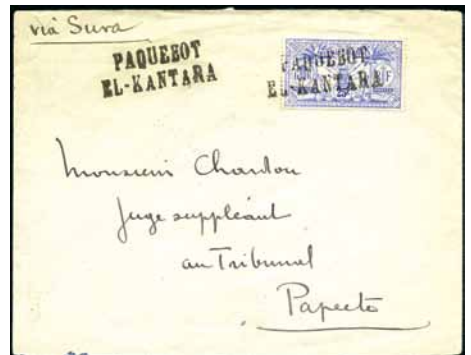 via Suva
PAQUEBOT
EL-KANTARA
PAQUEBOT
EL-KANTARA
Monsieur Chardon
Juge suppléant
au Tribunal
Papeete